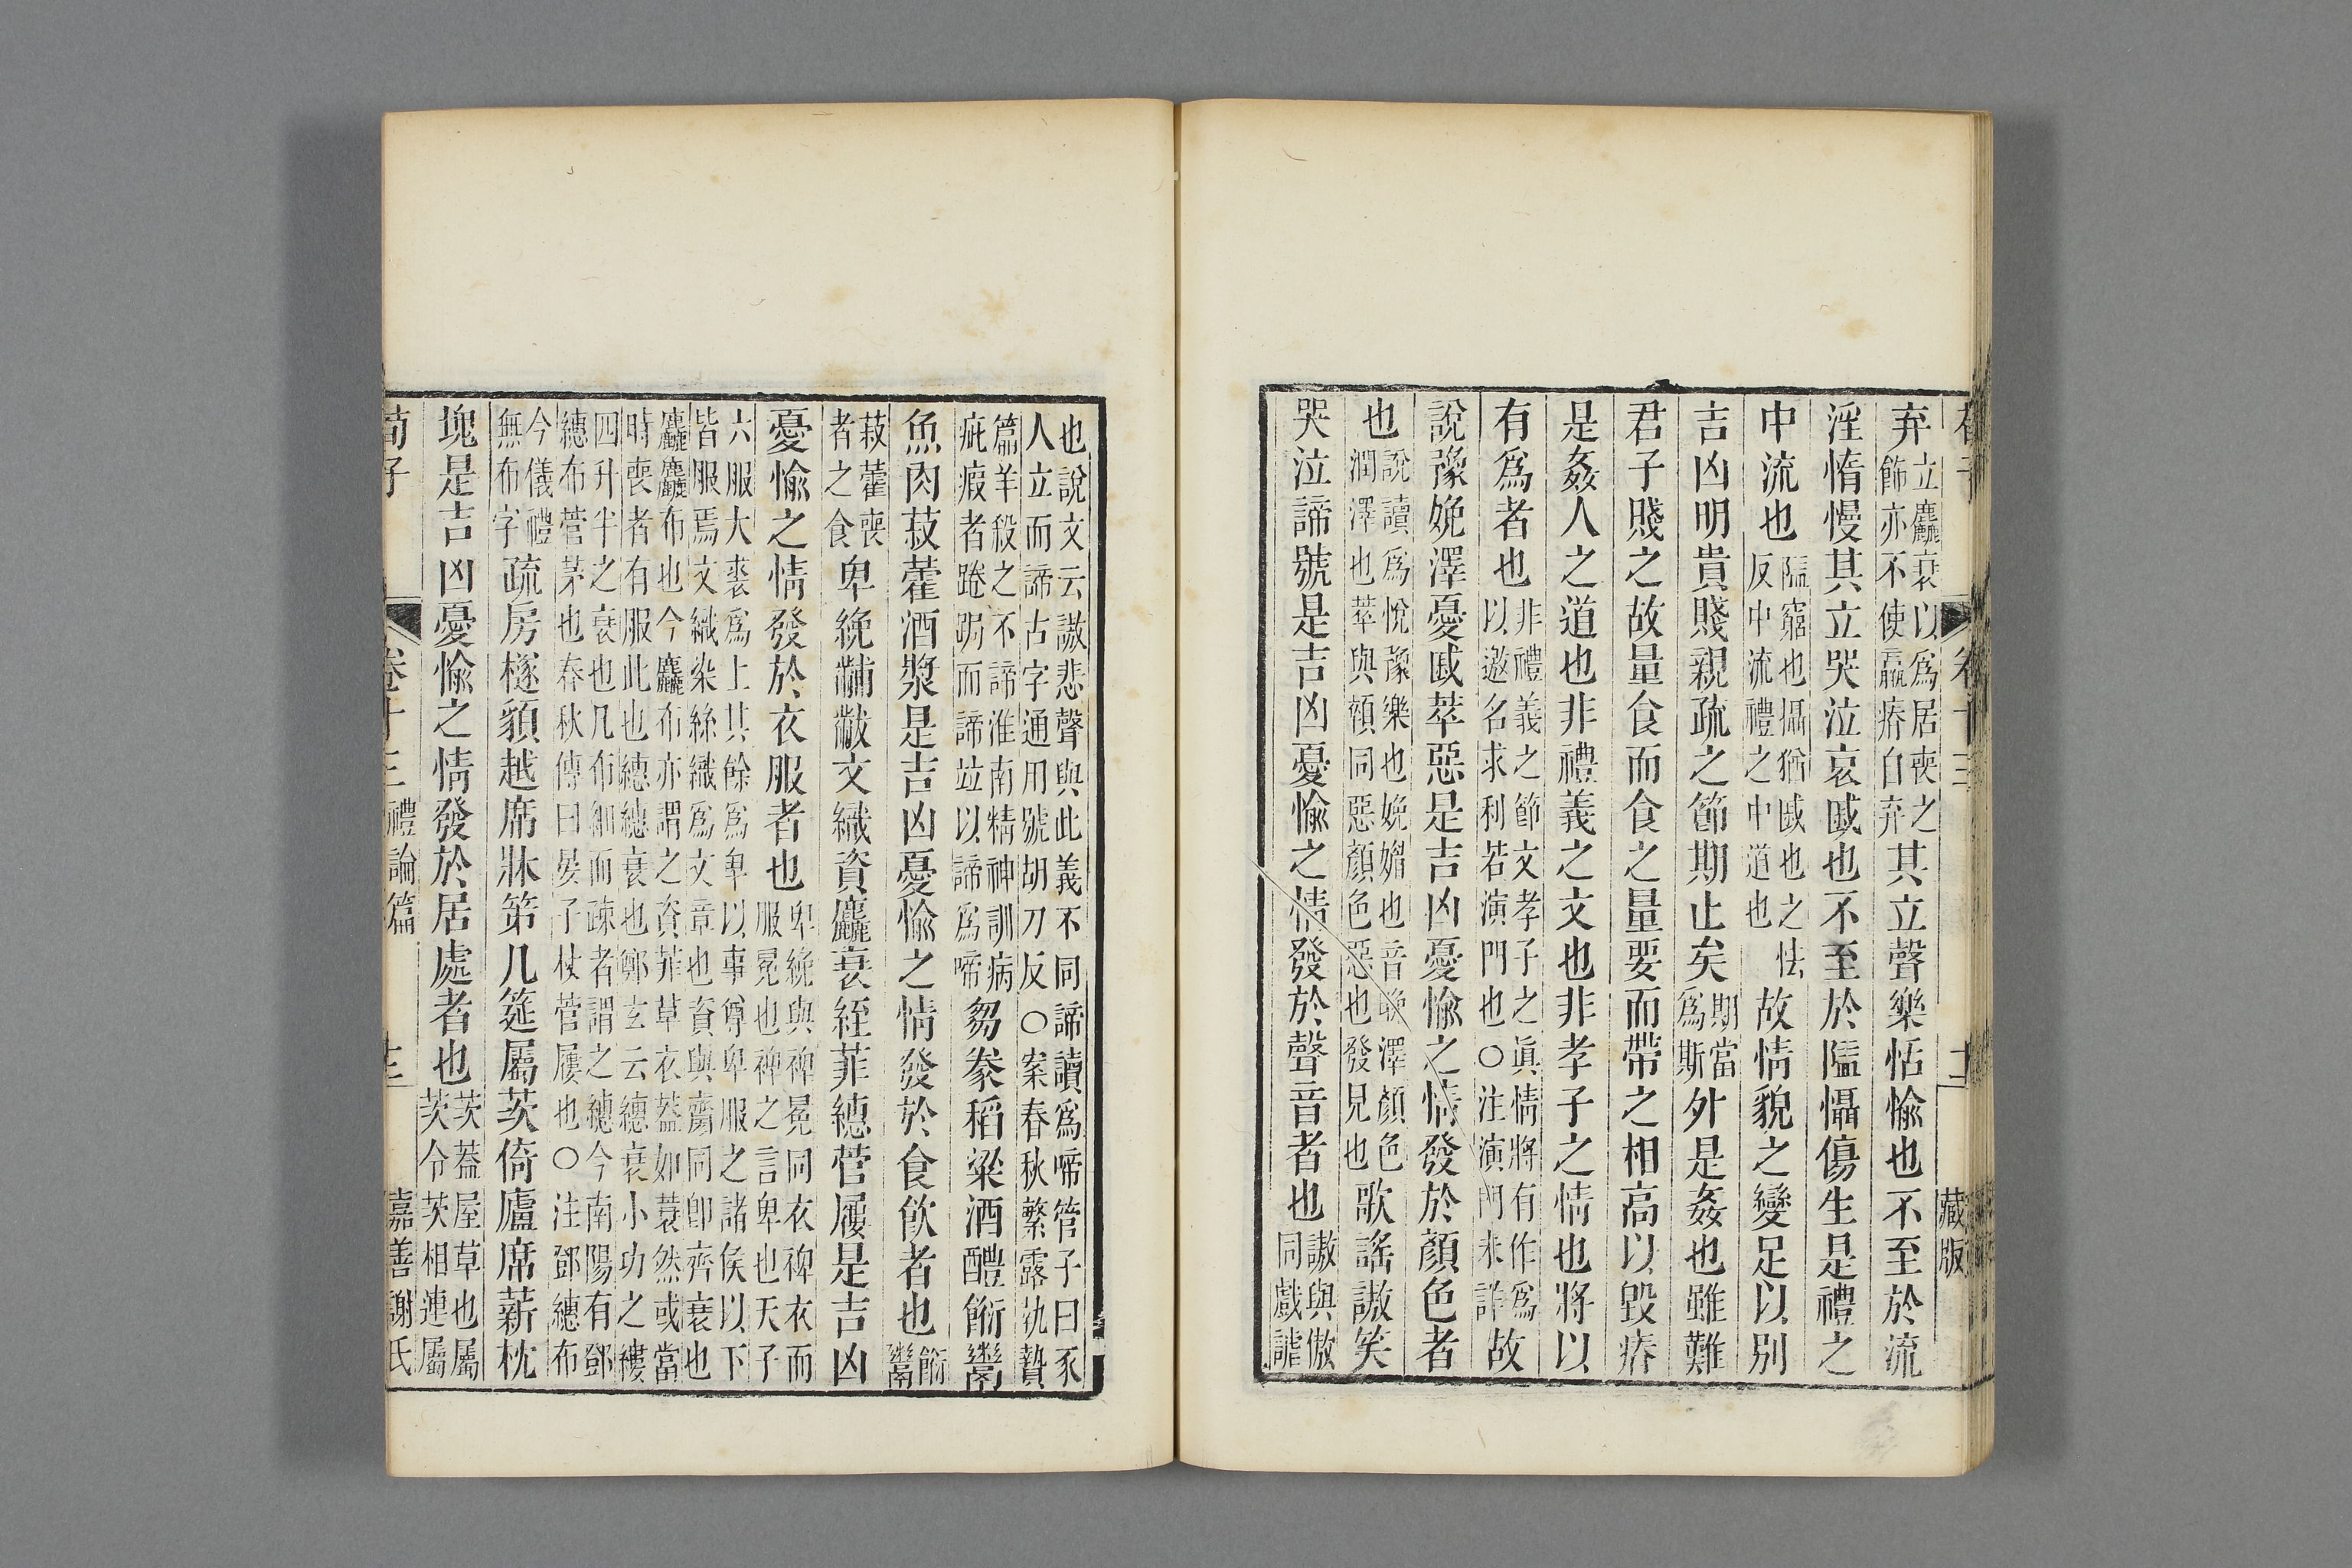 弃立麤衰以爲居喪之飾亦不使羸瘠自弃其立聲樂恬愉也不至於流
淫惰慢其立哭泣哀戚也不至於隘懾傷生是禮之
中流也隘窮也攝猶戚也之怯反中流禮之中道也故情貌之變足以別
吉凶明貴賤親疏之節期止矣期當爲斯外是姦也雖難
君子賤之故量食而食之量要而帶之相高以毀瘠
是姦人之道也非禮義之文也非孝子之情也將以
有爲者也非禮義之節文孝子之眞情將有作爲以邀名求利若演門也○注演門未詳故
說豫娩澤憂戚萃惡是吉凶憂愉之情發於顏色者
也說讀爲悅豫樂也娩媚也音晚澤顏色潤澤也萃與顇同惡顏色惡也發見也歌謠謸笑
哭泣諦號是吉凶憂愉之情發於聲音者也謸與傲同戲謔
也說文云謸悲聲與此義不同諦讀爲啼管子曰豕人立而諦古字通用號胡刀反○案春秋蘩露執贄
篇羊殺之不諦淮南精神訓病疵瘕者踡跼而諦竝以諦爲啼芻豢稻粱酒醴餰鬻
魚肉菽藿酒漿是吉凶憂愉之情發於食飲者也餰鬻
菽藿喪者之食卑絻黼黻文織資麤衰絰菲繐菅屨是吉凶
憂愉之情發於衣服者也卑絻與裨冕同衣裨衣而服冕也裨之言卑也天子
六服大裘爲上其餘爲卑以事尊卑服之諸侯以下皆服焉文織染絲織爲文章也資與齊同卽齊衰也
麤麤布也今麤布亦謂之資菲草衣蓋如蓑然或當時喪者有服此也繐繐衰也鄭玄云繐衰小功之縷
四升半之衰也凡布細而疎者謂之繐今南陽有鄧繐布菅茅也春秋傳曰晏子杖菅屨也○注鄧繐布
今儀禮無布字疏房檖䫉越席牀第几筵屬茨倚廬席薪枕
塊是吉凶憂愉之情發於居處者也茨蓋屋草也屬茨令茨相連屬
荀子 卷十三 禮論篇 十三 嘉善謝氏
藏版